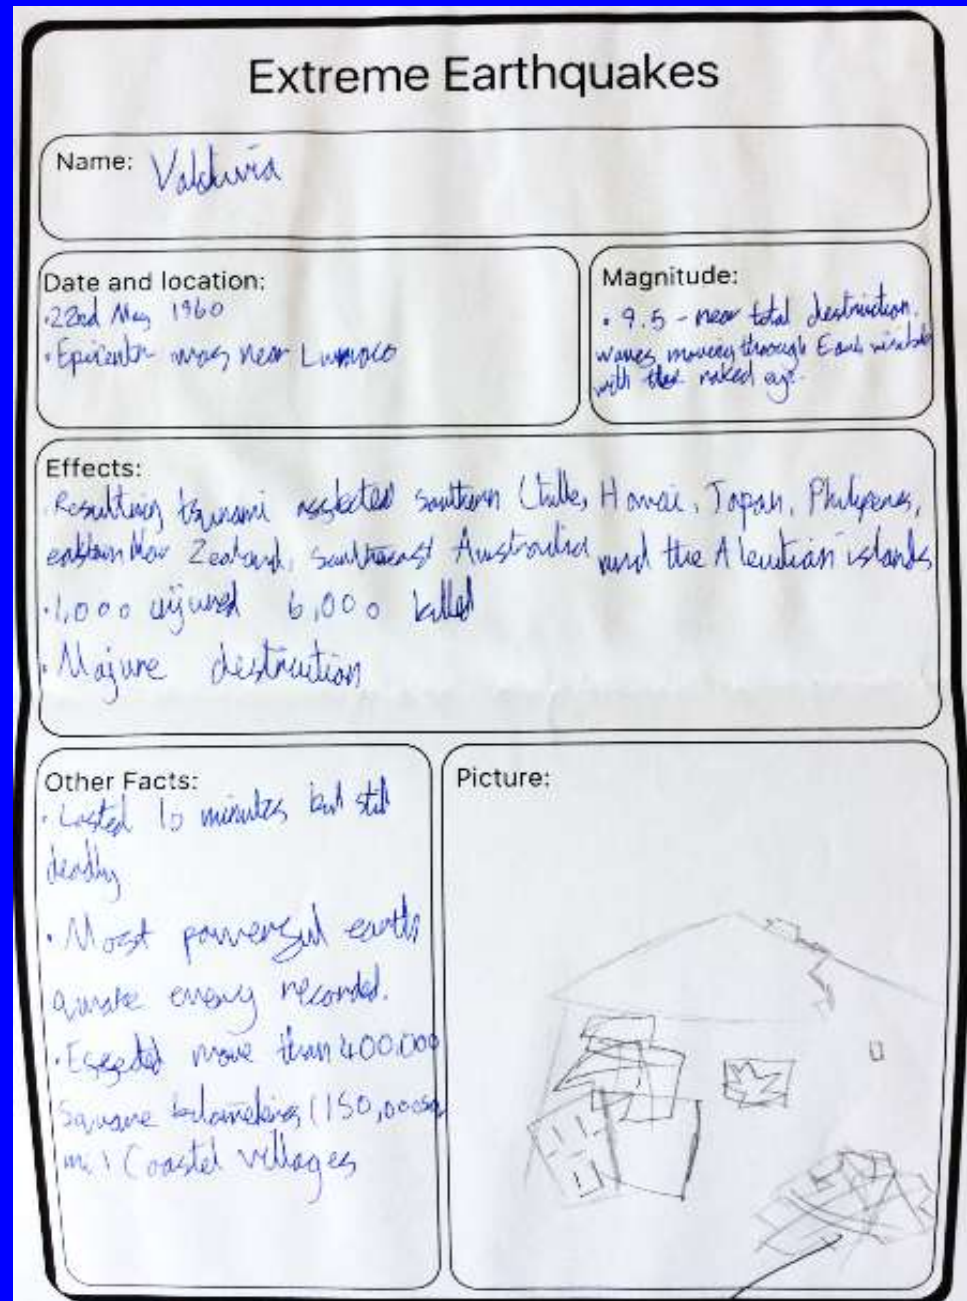 Extreme Earthquakes
Name: Valdivia
Date and location:
• 22nd May 1960
• Epicenter was near Lumaco
Magnitude:
• 9.5 - near total destruction.
waves moving through Earth visible
with the naked eye.
Effects:
• Resulting tsunami southern Chille, Hawai, Japan, Philipenes,
eastern New Zealand, southeast Australia and the Aleutian islands
• 1,000 injured 6,000 killed
• Majure destruction
Other Facts:
• Lasted 10 minutes but still
deadly
• Most powerful earth
quake recorded.
• more than 400,000
Square kilometers (150,000sq
mi) Coastel villages
Picture: